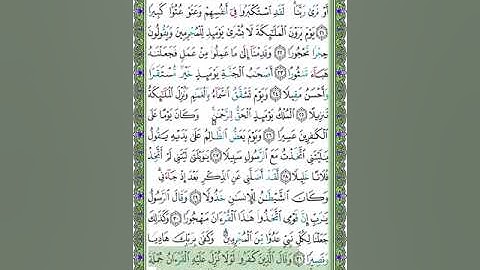 أَوْ نَرَىٰ رَبَّنَا ۗ لَقَدِ ٱسْتَكْبَرُوا۟ فِىٓ أَنفُسِهِمْ وَعَتَوْ عُتُوًّا كَبِيرًا
٢١ يَوْمَ يَرَوْنَ ٱلْمَلَٰٓئِكَةَ لَا بُشْرَىٰ يَوْمَئِذٍ لِّلْمُجْرِمِينَ وَيَقُولُونَ
حِجْرًا مَّحْجُورًا ٢٢ وَقَدِمْنَآ إِلَىٰ مَا عَمِلُوا۟ مِنْ عَمَلٍ فَجَعَلْنَٰهُ
هَبَآءً مَّنثُورًا ٢٣ أَصْحَٰبُ ٱلْجَنَّةِ يَوْمَئِذٍ خَيْرٌ مُّسْتَقَرًّا
وَأَحْسَنُ مَقِيلًا ٢٤ وَيَوْمَ تَشَقَّقُ ٱلسَّمَآءُ بِٱلْغَمَٰمِ وَنُزِّلَ ٱلْمَلَٰٓئِكَةُ
تَنزِيلًا ٢٥ ٱلْمُلْكُ يَوْمَئِذٍ ٱلْحَقُّ لِلرَّحْمَٰنِ ۚ وَكَانَ يَوْمًا عَلَى
ٱلْكَٰفِرِينَ عَسِيرًا ٢٦ وَيَوْمَ يَعَضُّ ٱلظَّالِمُ عَلَىٰ يَدَيْهِ يَقُولُ
يَٰلَيْتَنِى ٱتَّخَذْتُ مَعَ ٱلرَّسُولِ سَبِيلًا ٢٧ يَٰوَيْلَتَىٰ لَيْتَنِى لَمْ أَتَّخِذْ
فُلَانًا خَلِيلًا ٢٨ لَّقَدْ أَضَلَّنِى عَنِ ٱلذِّكْرِ بَعْدَ إِذْ جَآءَنِى ۗ
وَكَانَ ٱلشَّيْطَٰنُ لِلْإِنسَٰنِ خَذُولًا ٢٩ وَقَالَ ٱلرَّسُولُ
يَٰرَبِّ إِنَّ قَوْمِى ٱتَّخَذُوا۟ هَٰذَا ٱلْقُرْءَانَ مَهْجُورًا ٣٠ وَكَذَٰلِكَ
جَعَلْنَا لِكُلِّ نَبِىٍّ عَدُوًّا مِّنَ ٱلْمُجْرِمِينَ ۗ وَكَفَىٰ بِرَبِّكَ هَادِيًا
وَنَصِيرًا ٣١ وَقَالَ ٱلَّذِينَ كَفَرُوا۟ لَوْلَا نُزِّلَ عَلَيْهِ ٱلْقُرْءَانُ جُمْلَةً